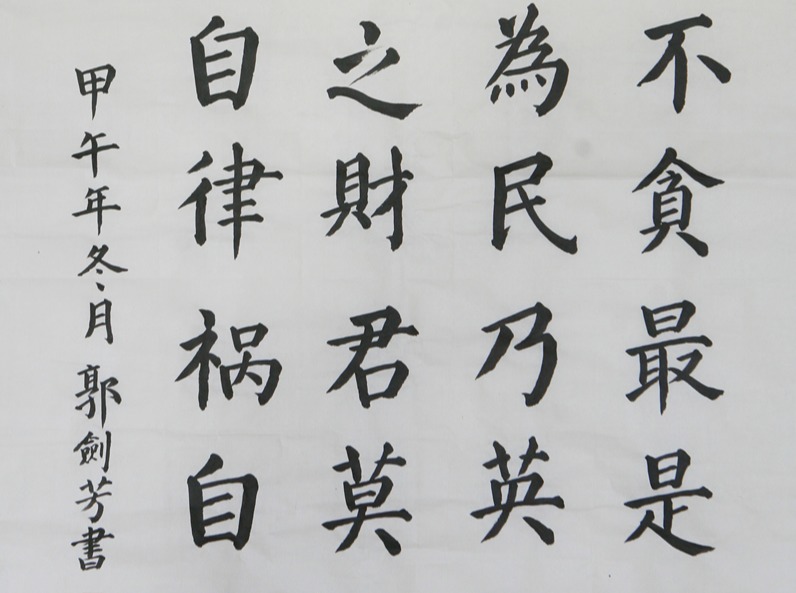 不貪最是
為民乃英
之財君莫
自律祸自
甲午年冬月郭劍芳書